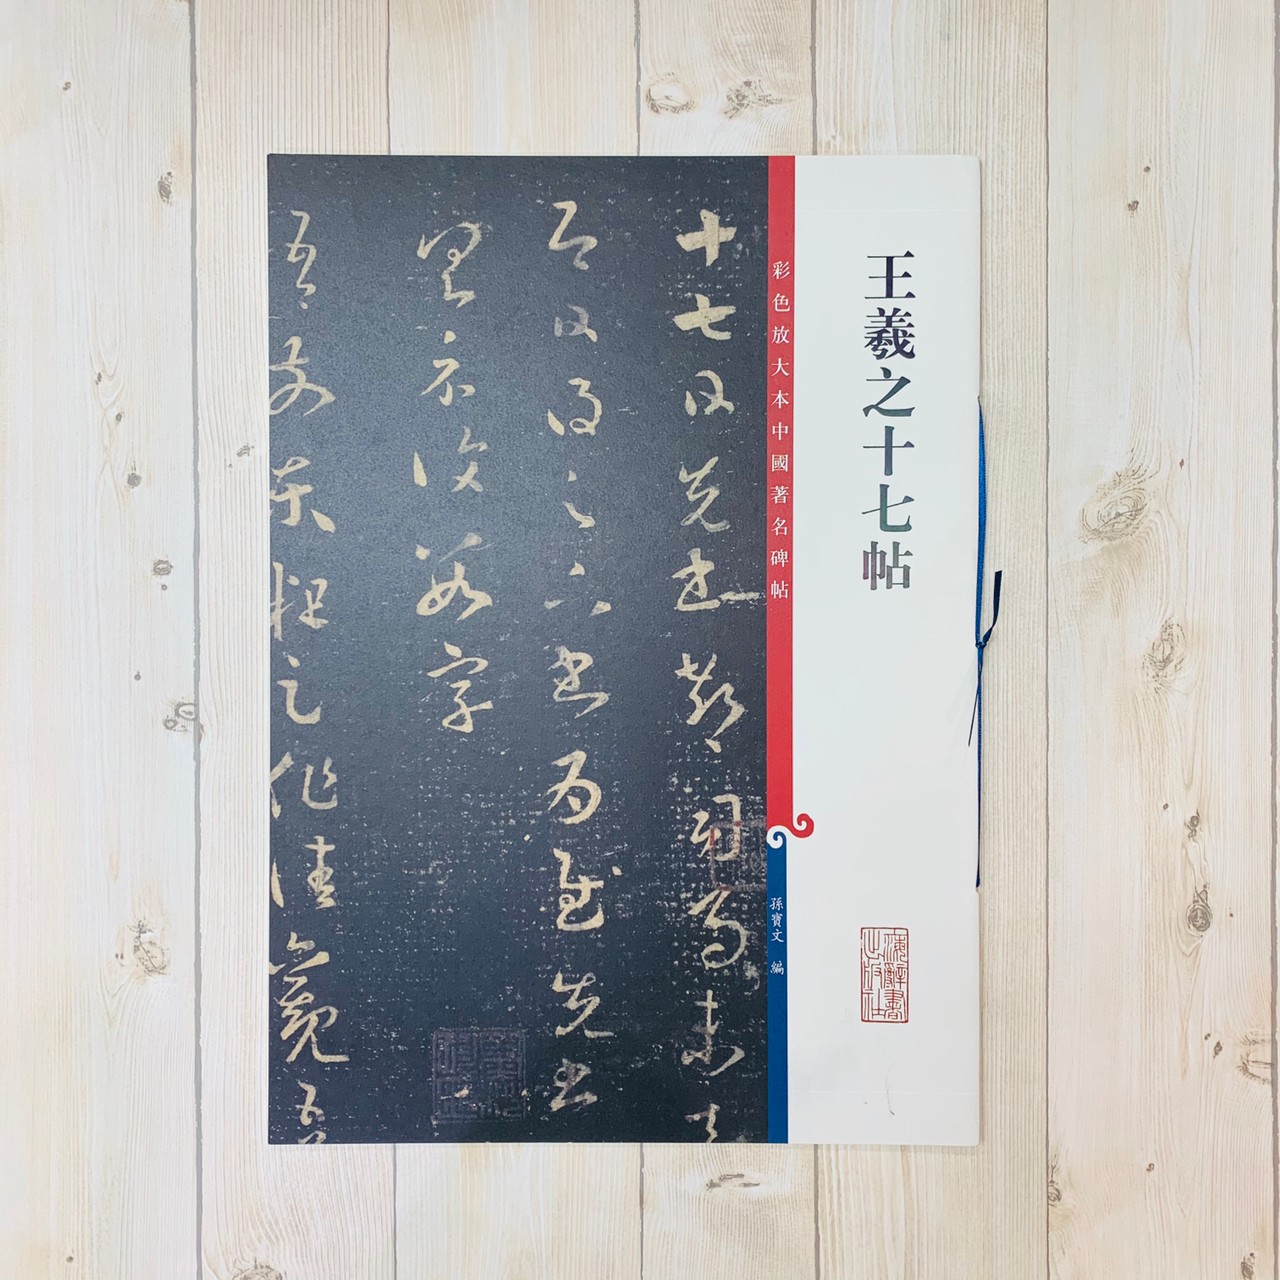 王羲之十七帖
彩色放大本中國著名碑帖
孫寶文 編
海辭書
出版社
十七日先書郗司馬未去
即日得足下書為慰先書
以具示復數字
吾前東粗足作佳觀吾